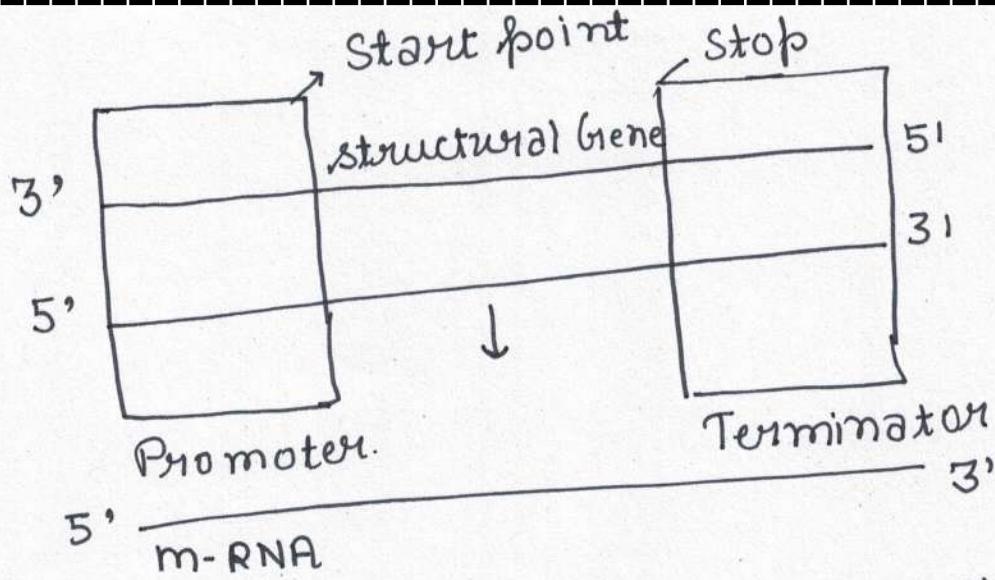 Start point
Stop
structural Gene
5'
3'
3'
5'
Promoter.
Terminator
5'
3'
m-RNA